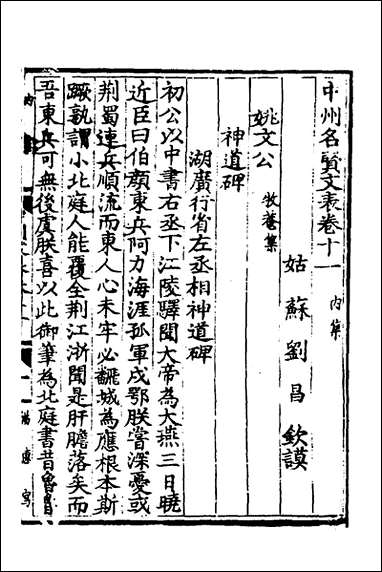 中州名賢文表卷十一 内集
姑蘇劉昌欽謨
姚文公 牧菴集
神道碑
湖廣行省左丞相神道碑
初公以中書右丞下江陵驛聞大帝為大燕三日曉
近臣曰伯顏東兵阿力海涯孤軍戍鄂朕嘗深憂或
荆蜀連兵順流而東人心未牢必飜城為應根本斯
蹶孰謂小北庭人能覆全荆江浙聞是肝膽落矣而
吾東兵可無後虞朕喜以此御筆為北庭書昔魯魯